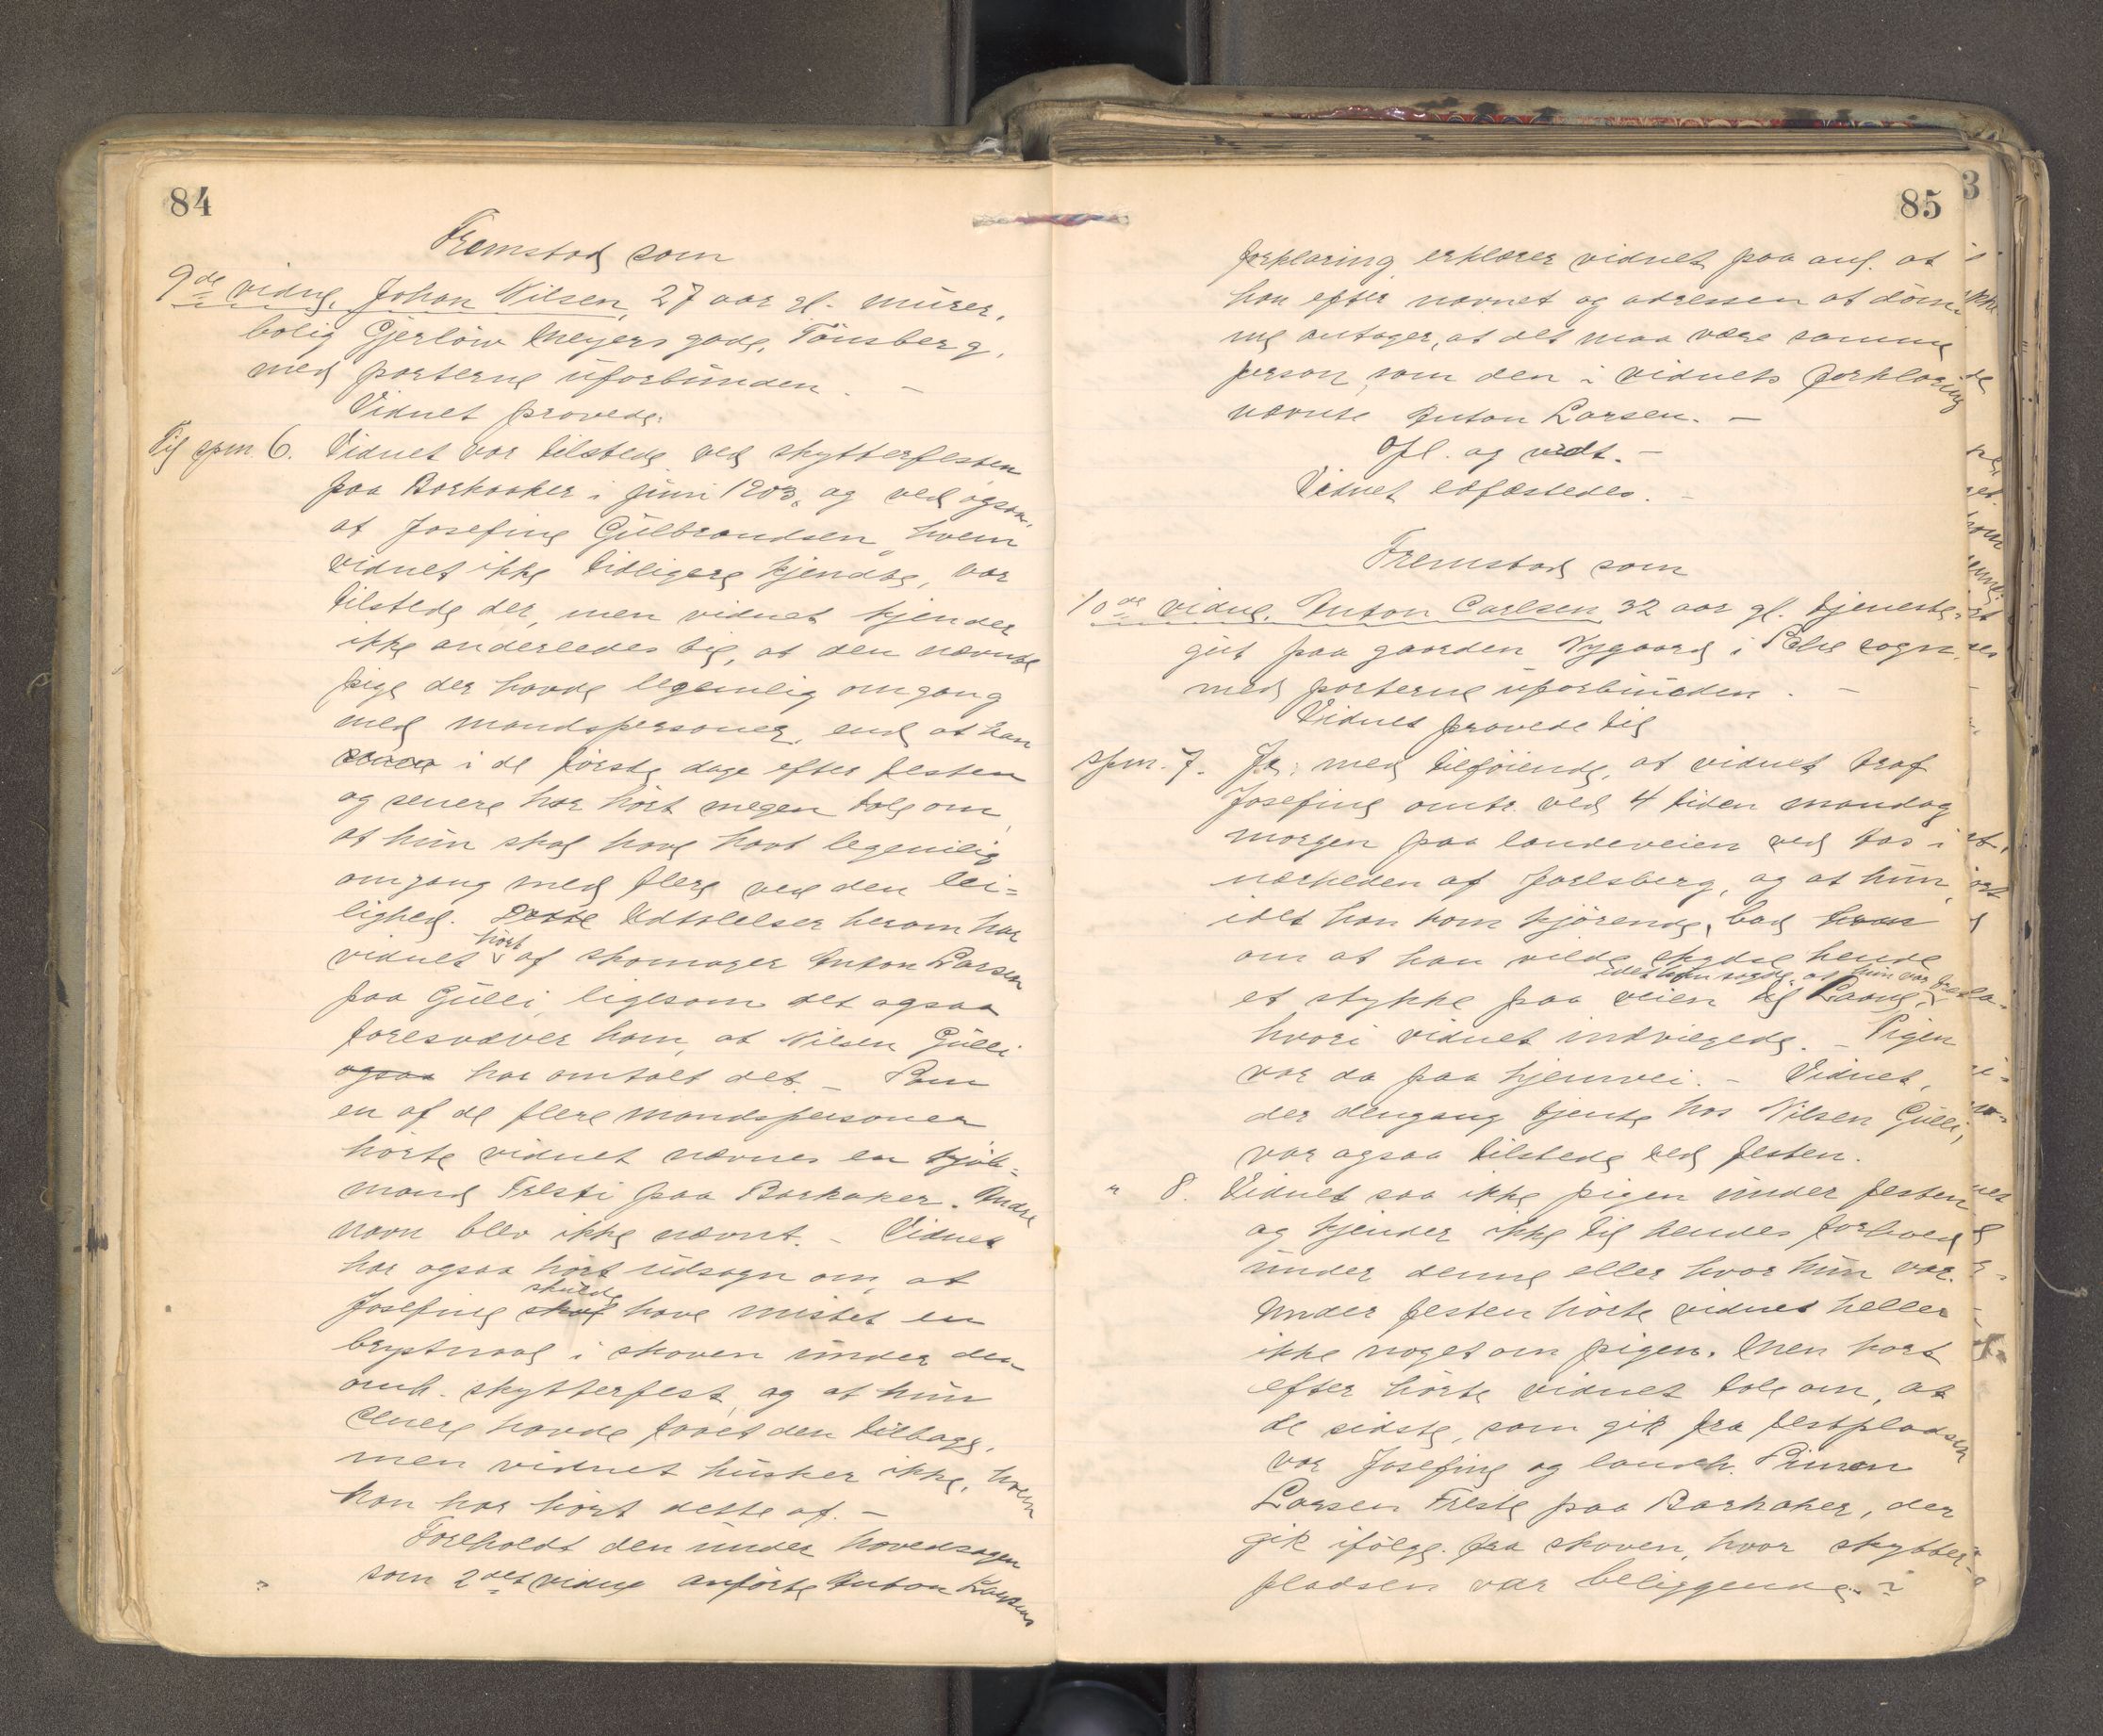 84
Fremstod som
9de vidne, Johan Nilsen, 27 aar gl. murer,
bolig Gjerløw Meyers gade, Tønsberg,
med parterne uforbunden. –
Vidnet provede:
Til spm. 6. Vidnet var tilstede ved skytterfesten
paa Barkaaker i juni 1903, og ved ogsaa,
at Josefine Gulbrandsen, hvem
vidnet ikke tidligere kjendte, var
tilstede der, men vidnet kjender
ikke anderledes til, at den nævnte
pige der havde legemlig omgang
med mandspersoner, end at han
i de første dage efter festen
og senere har hørt megen tale om,
at hun skal have havt legemlig
omgang med flere ved den lei-
lighed. Udtalelser herom har
vidnet hørt af skomager Anton Larsen
paa Gulli, ligesom det ogsaa
foresvæver ham, at Nilsen Gulli
ogsaa har omtalt det – Som
en af de flere mandspersoner
hørte vidnet nævnes en kjøb-
mand Freste paa Barkaker. Andre
navn blev ikke nævnt. – Vidnet
har ogsaa hørt udsagn om, at
Josefine skal skulde have mistet en
brystnaal i skoven under den
omh. skytterfest, og at hun
senere havde faaet den tilbage,
men vidnet husker ikke, hvem
han har hørt dette af. –
Foreholdt den under hovedsagen
som 2det vidne anførte Anton Larsens
85
forklaring erklærer vidnet paa anl. at
han efter navnet og adressen at døm-
me antager, at det maa være samme
person som den i vidnets forklaring
nævnte Anton Larsen. –
Opl. og vedt. –
Vidnet edfæstedes. –
Fremstod som
10de vidne, Anton Carlsen 32 aar gl. tjeneste-
gut paa gaarden Nygaard i sogn,
med parterne uforbunden. –
Vidnet provede til
spm. 7. Ja, med tilføiende, at vidnet traf
Josefine omtr. ved 4 tiden mandag
morgen paa landeveien ved Aas i
nærheden af Jarlsberg, og at hun,
idet han kom kjørende, bad ham
om at han vilde skydse hende
et stykke paa veien til
idet hun sagde, at hun var
hvori vidnet indvilgede. – Pigen
var da paa hjemvei. – Vidnet,
der dengang tjente hos Nilsen Gulli,
var ogsaa tilstede ved festen.
" 8. Vidnet saa ikke pigen under festen
og kjender ikke til hendes forhold
under denne eller hvor hun var.
Under festen hørte vidnet heller
ikke noget om pigen. Men kort
efter hørte vidnet tale om, at
de sidste, som gik fra festpladsen
var Josefine og landh. Simon
Larsen Freste paa Barkaker, der
gik ifølge fra skoven, hvor skytter-
pladsen var beliggende. –